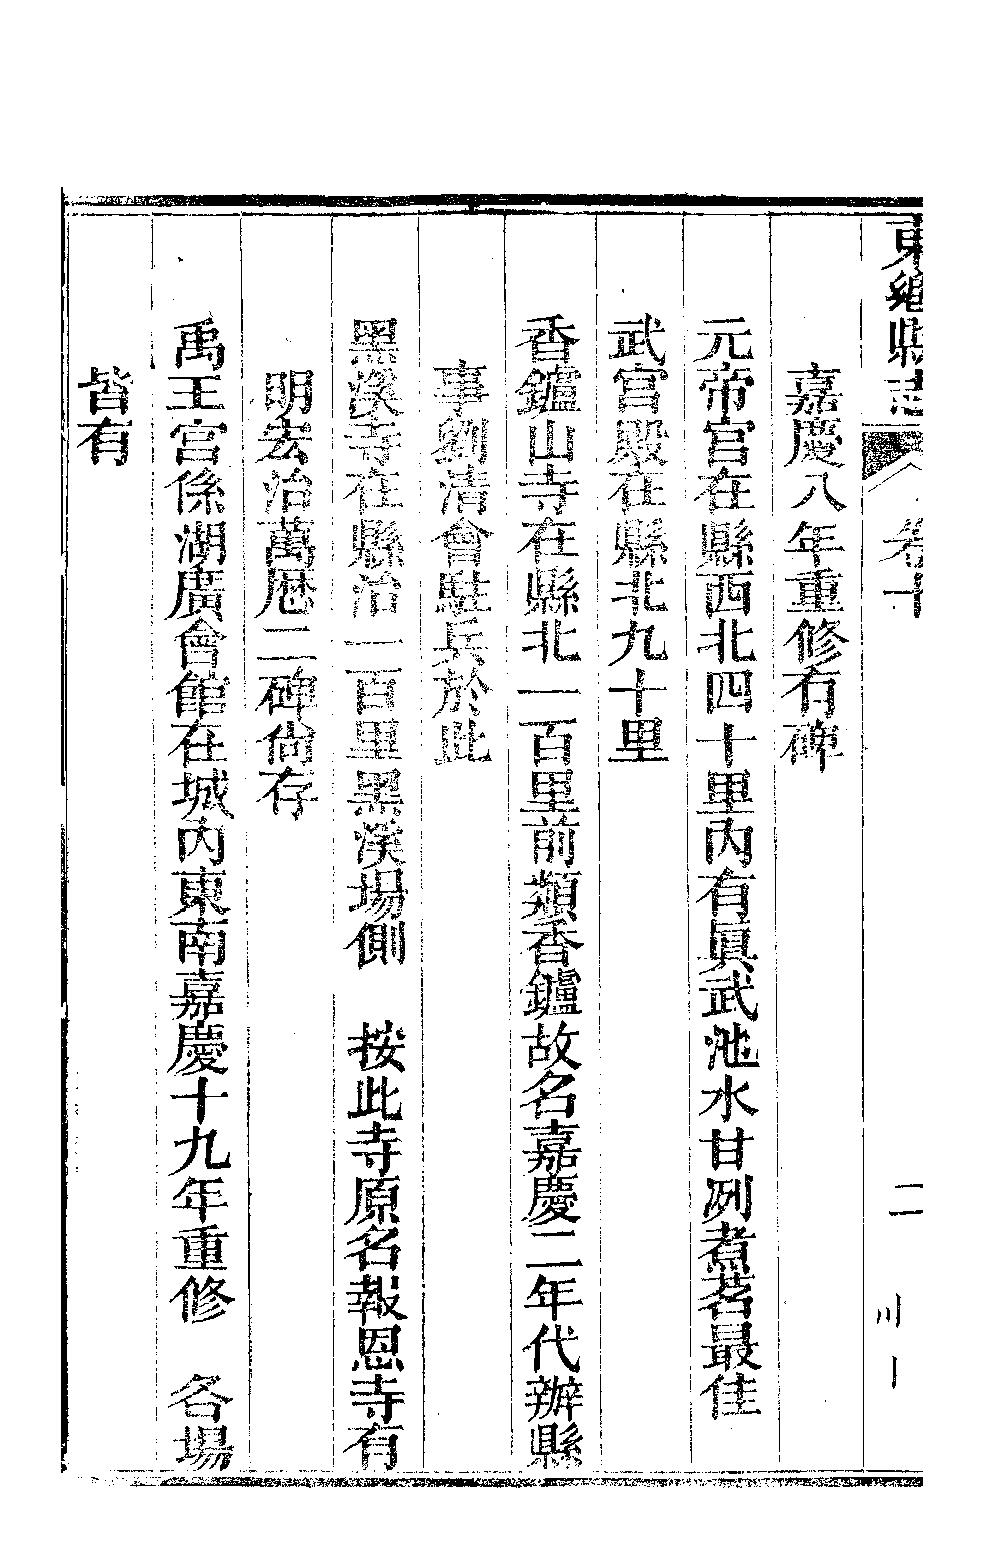 東鄉縣志 卷十 二
嘉慶八年重修有碑
元帝宮在縣西北四十里內有眞武池水甘冽煮茗最佳
武官殿在縣北九十里
香鑪山寺在縣北一百里前類香鑪故名嘉慶二年代辦縣
事劉清會駐兵於此
黑溪寺在縣治一百里黑溪場側 按此寺原名報恩寺有
明宏治萬厯二碑尙存
禹王宮係湖廣會館在城內東南嘉慶十九年重修 各場
皆有